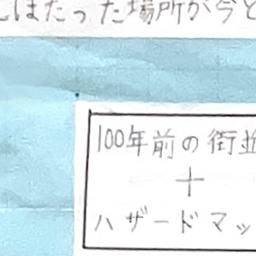 はたった場所が今と
100年前の街並
+
ハザードマッ